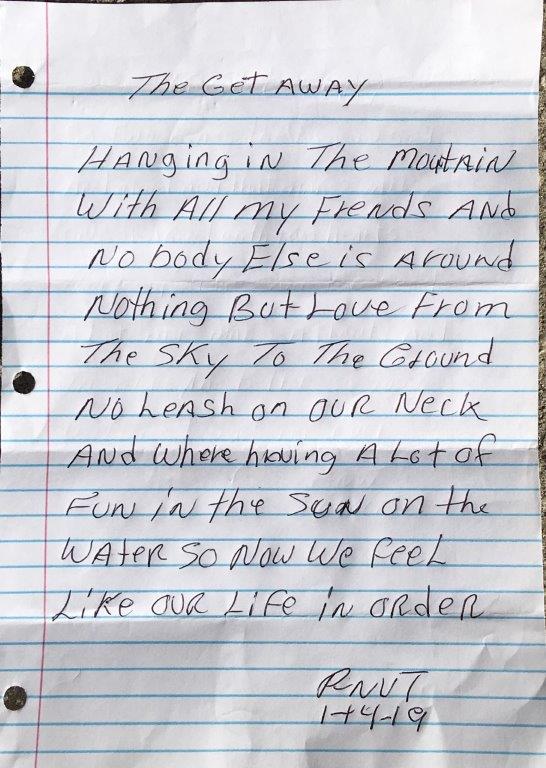 The Get AWAY
HANging iN The moutAiN
With All my Frends ANd
No body Else is Around
Nothing But Love From
The SKy To The Ground
No LeASh on OUR Neck
ANd Where having A Lot of
FUN iN the Sun on the
WAteR So Now We feel
Like OUR LiFe iN ORdeR
RNVT
1-14-19